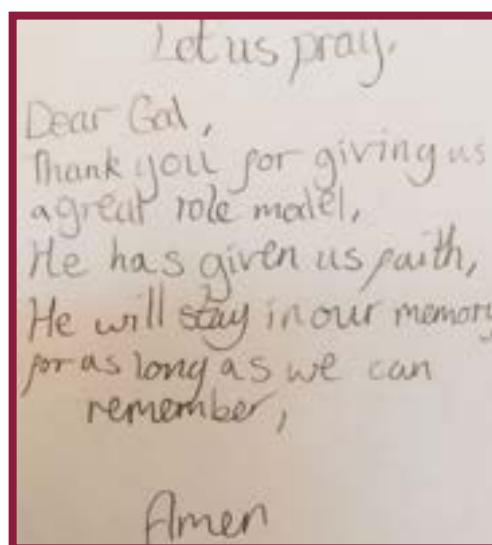 Let us pray.
Dear God,
Thank you for giving us
a great role model,
He has given us faith,
He will stay in our memory
for as long as we can
remember,
Amen